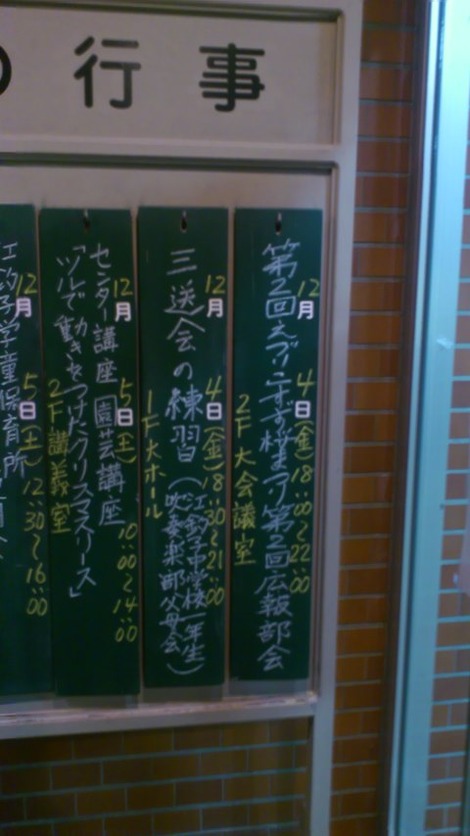 の行事
12月4日(金)18:00〜22:00
第2回えづりこ
第2回広報部会
2F大会議室
12月4日(金)18:30〜21:00
三送会の練習(江釣子中学校一年生吹奏楽部父母会)
1F大ホール
12月5日(土)10:00〜14:00
センター講座 園芸講座
「ツルで動きをつけたクリスマスリース」
2F講義室
12月5日(土)12:30〜16:00
江釣子学童保育所